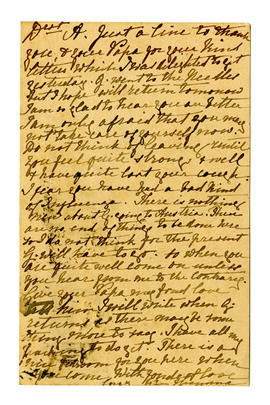 Dear A. Just a line to thank
you & your Papa for your kind
letters which I was delighted to get
yesterday. G. went to the
but I hope will return tomorrow
I am so glad to hear you are better
I am only afraid that you may
not take care of yourself now.
Do not think of leaving until
you feel quite strong & well
& have quite lost your cough.
I fear you have had a bad kind
of Influenza. There is nothing
about G. going to Austria. There
are no end of things to be done here
so I do not think for the present
G. will have to go. So when you
are quite well come on unless
you hear from me to the contrary.
Give your Papa my fond love
tell him I will write when G.
returns as there may be some
thing more to say. I have all my
packing to do yet. There is a
room for you here when
you come. With fonds of love